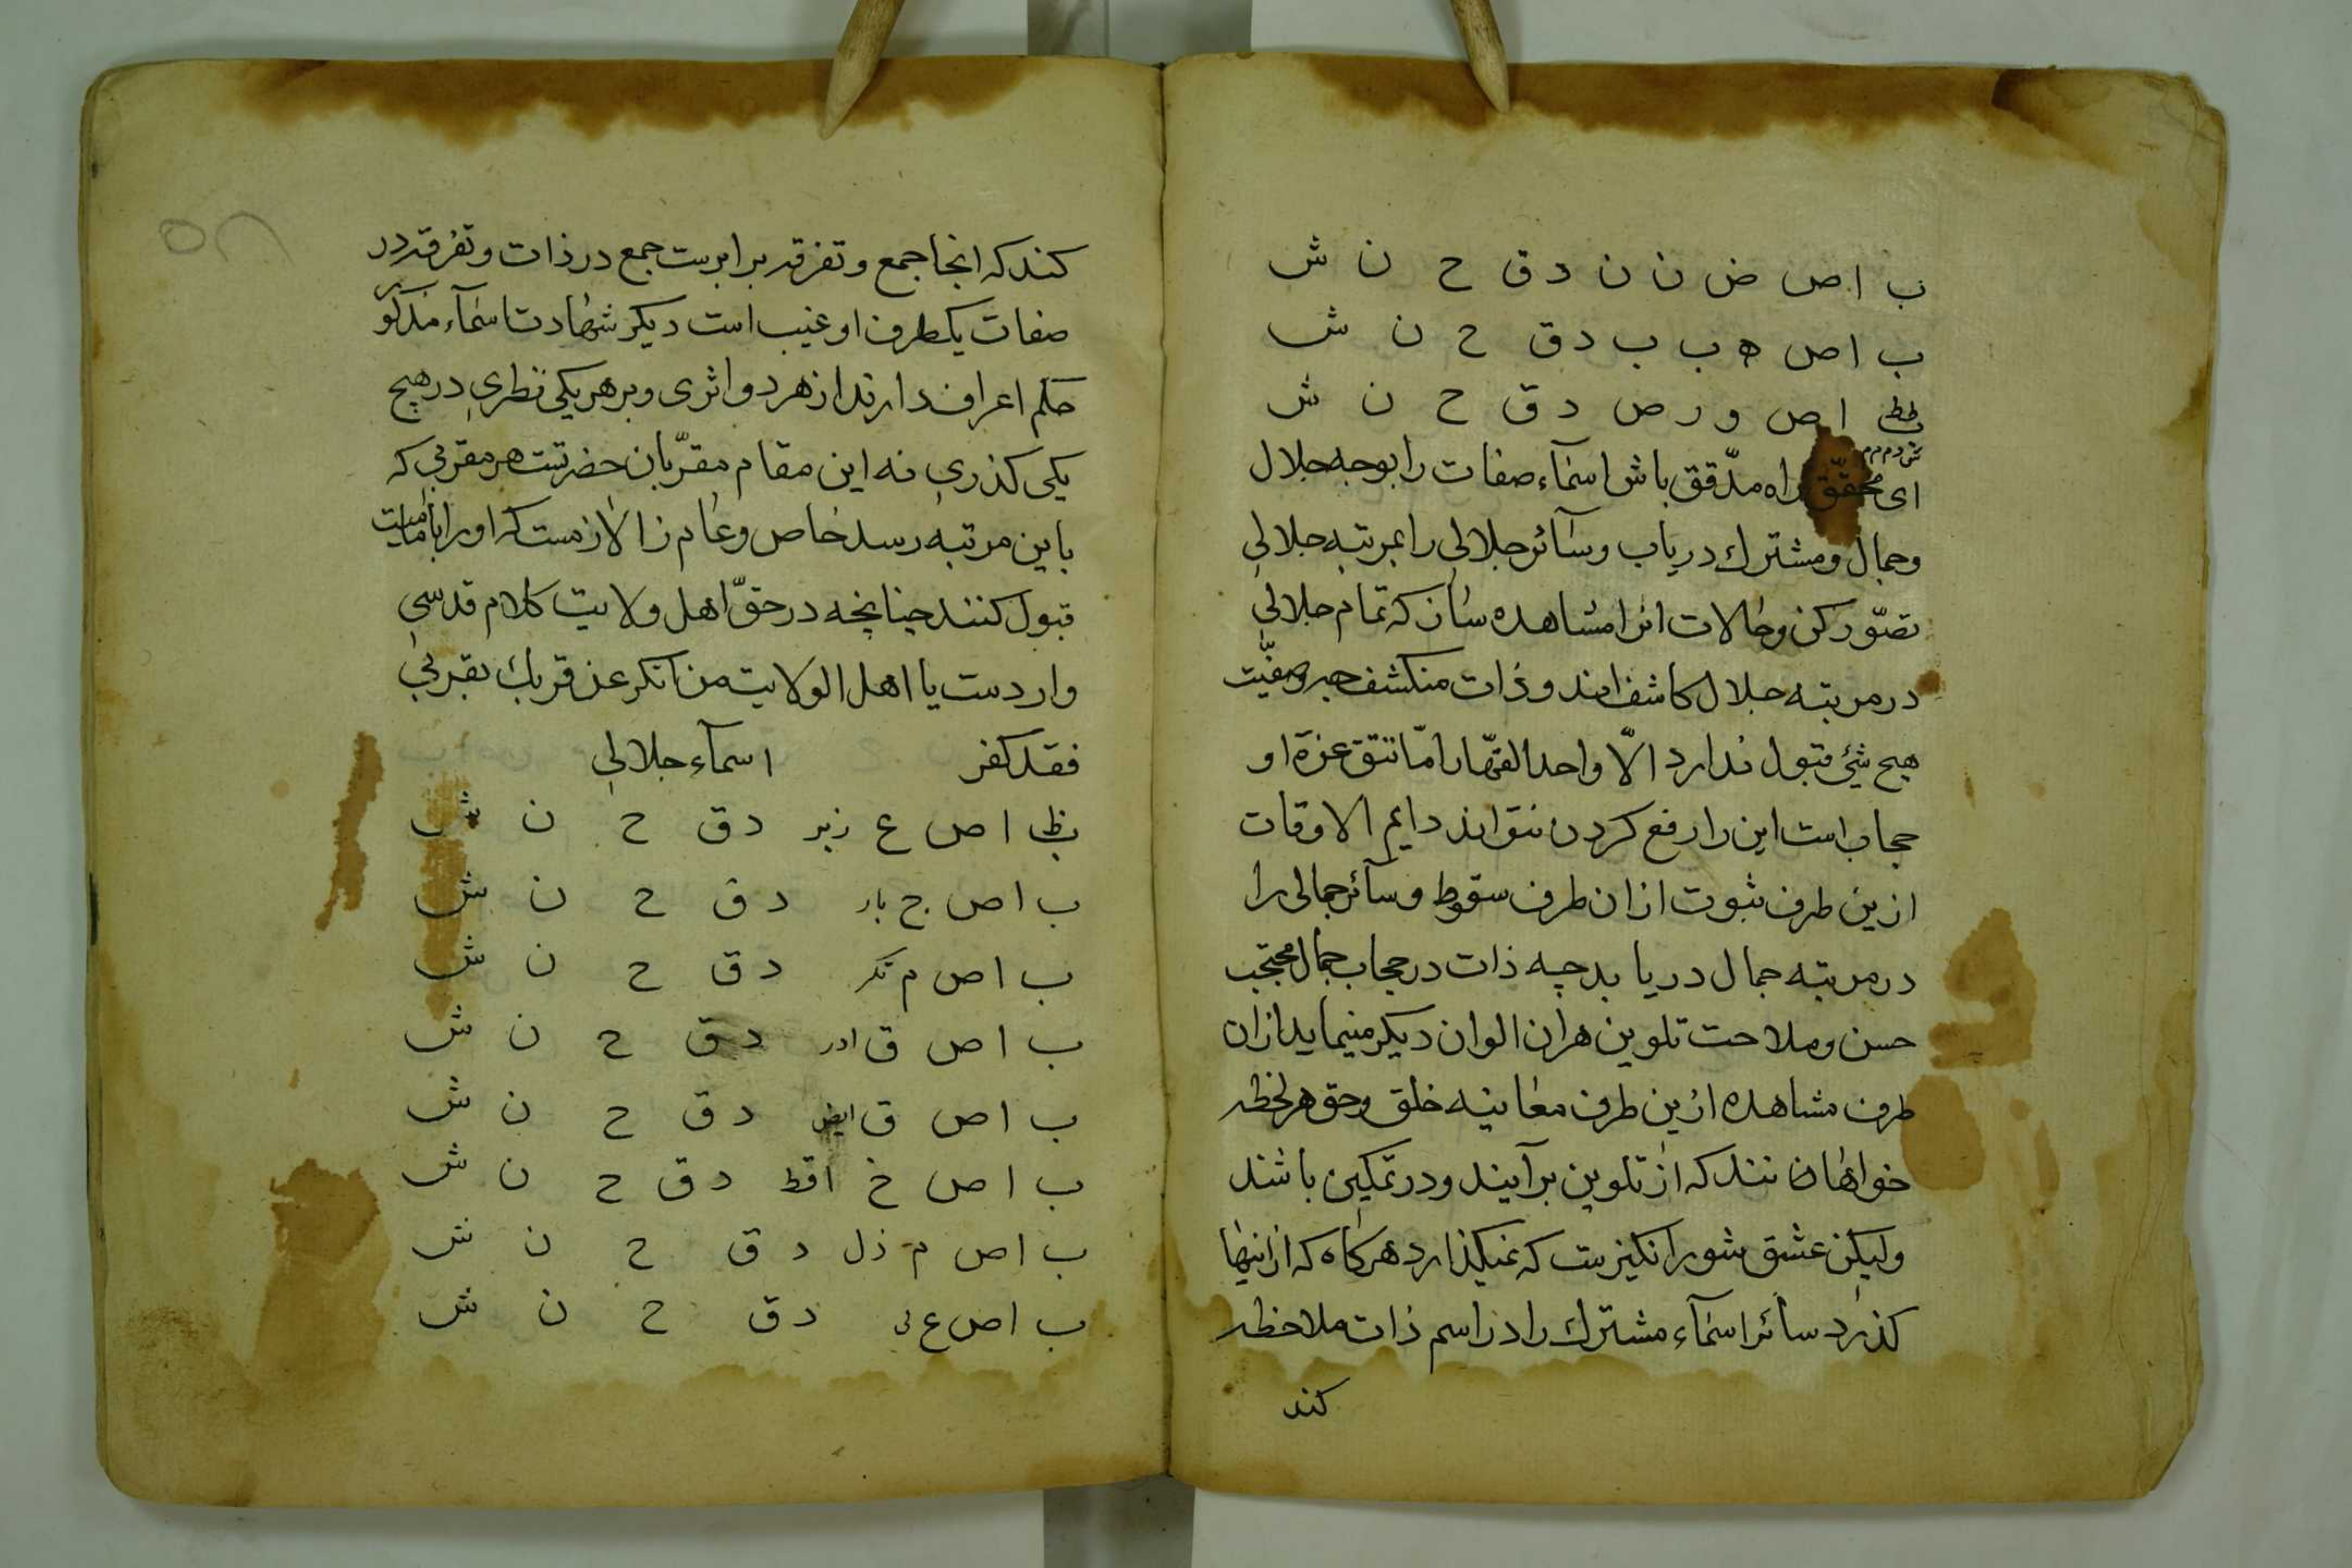 ب ا ص ض ن ن د ق ح ن ش
ب ا ص ه ب ب د ق ح ن ش
ا ص و ر ص د ق ح ن ش
ای محقّق راه مدّقق باش اسمآء صفات را بوجه جلال
وجمال و مشترك دریاب وسآئر جلالی را بمرتبه جلالی
تصّور کن وحالات انرا مشاهده ساز که تمام جلالی
در مرتبه جلال کاشف اند و ذات منکشف
هیچ شیٔ قبول ندارد الّا واحد القهّار امّا تتق عزة او
حجاب است این را رفع کردن نتواند دایم الاوقات
ازین طرف ثبوت ازان طرف سقوط وسآئر جمالی را
در مرتبه جمال دریابد چه ذات در حجاب جمال محتجب
حسن وملاحت تلوین هران الوان دیکر مینماید ازان
طرف مشاهده ازین طرف معاینه خلق وحق هر لحظه
خواهان نند که از تلوین برآیند ودر تمکین باشند
ولیکن عشق شور انکیزست که نمیکذارد هرکاه که ازینها
کذرد سائر اسمآء مشترك را در اسم ذات ملاحظه
کند
کند که انجا جمع و تفرقه برابرست جمع در ذات و تفرقه در
صفات یکطرف او غیب است دیکر شهادت اسمآء مذکور
حکم اعراف دارند از هر دو اثری وبر هر یکی نظری در هیچ
یکی کذری نه این مقام مقرّبان حضرتست هر مقربی که
باین مرتبه رسد خاص وعام را لازمست که او را
قبول کنند چنانچه در حقّ اهل ولایت کلام قدسی
واردست یا اهل الولایت من انکر عن قربك بقربی
فقد کفر اسمآء جلالی
ا ص ع زیر د ق ح ن ش
ب ا ص ج بار د ق ح ن ش
ب ا ص م تکر د ق ح ن ش
ب ا ص ق ادر د ق ح ن ش
ب ا ص ق ابض د ق ح ن ش
ب ا ص خ افظ د ق ح ن ش
ب ا ص م ذل د ق ح ن ش
ب ا ص ع لی د ق ح ن ش